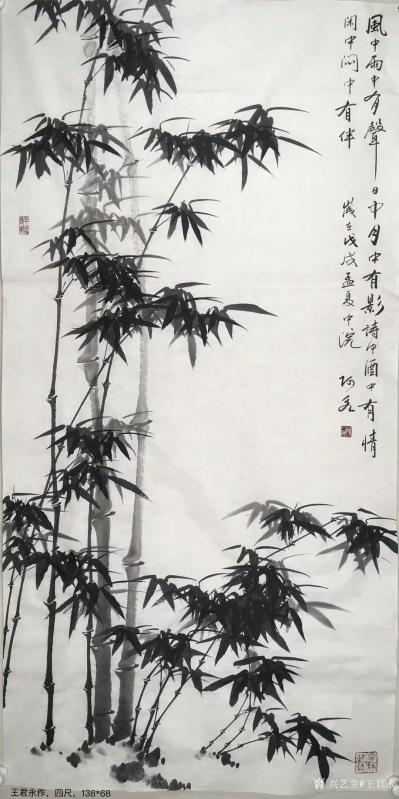 風中雨中有聲日中月中有影詩中酒中有情
闲中闷中有伴
歲在戊戌孟夏中浣
王君永作，四尺，138*68
兴艺堂@王君永